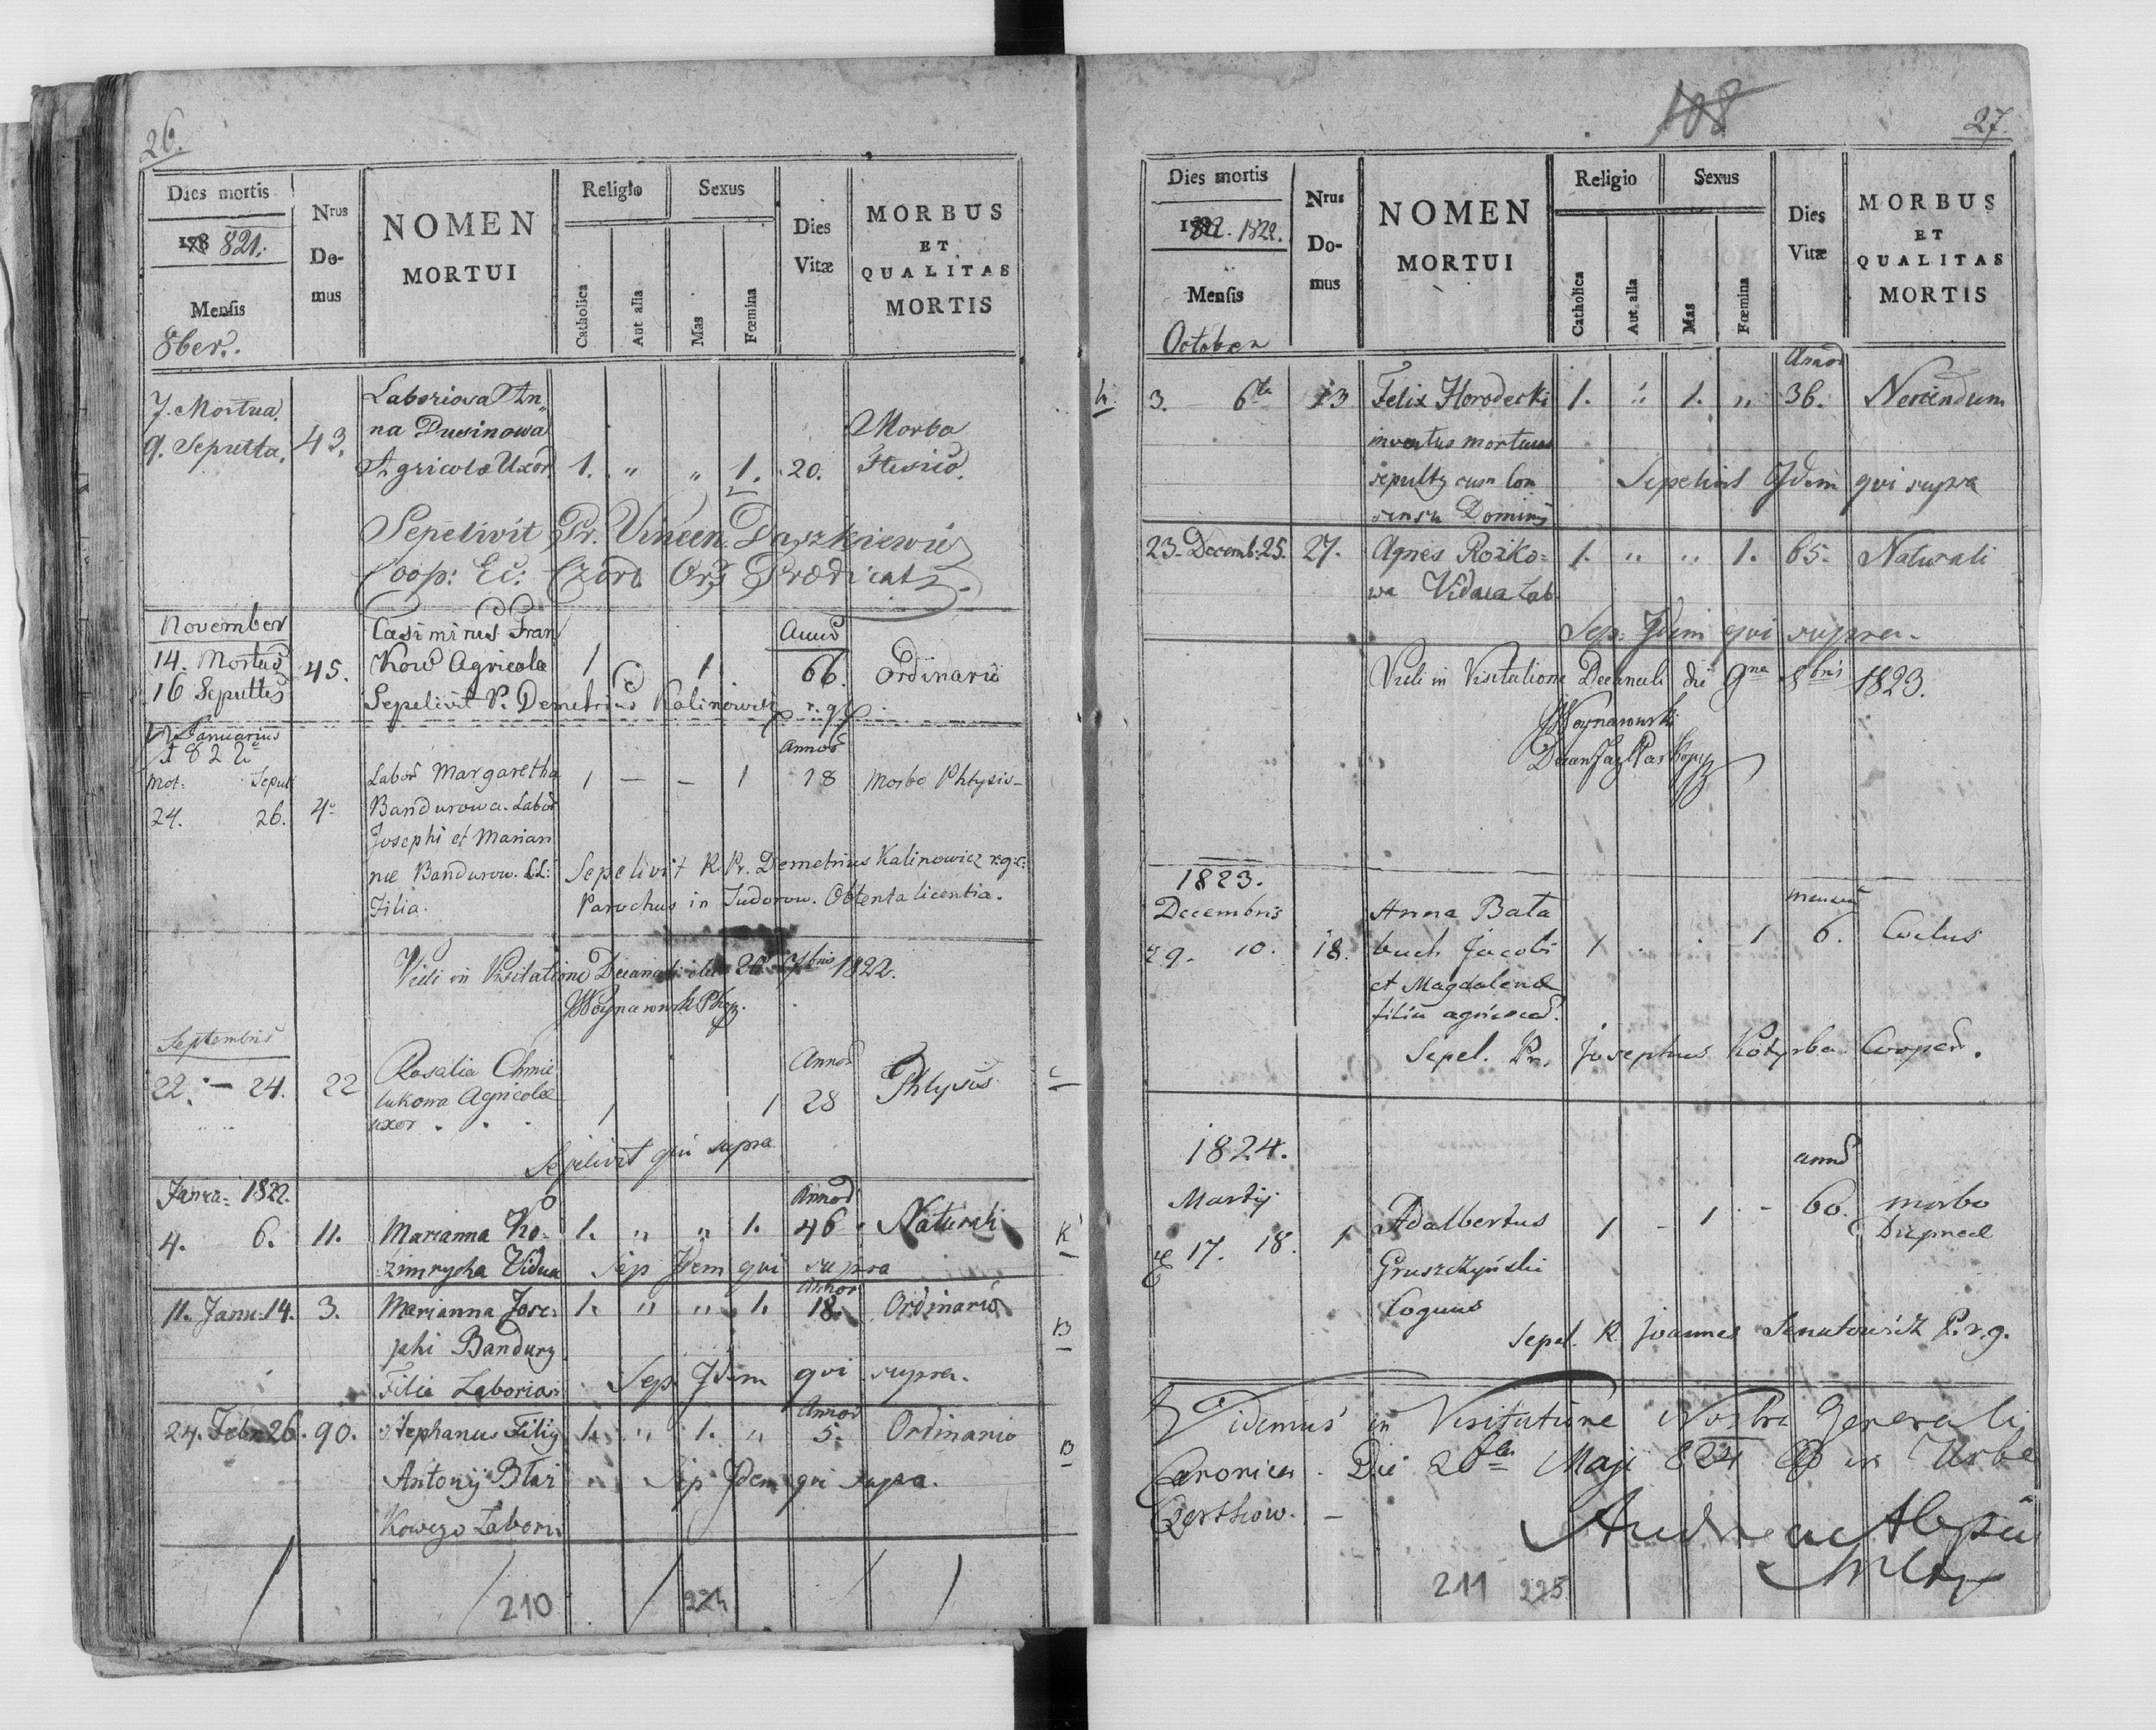 26.
Dies mortis
178 821.
Mensis
8ber.
Nrus
Do-
mus
NOMEN
MORTUI
Religio
Catholica
Aut alia
Sexus
Mas
Fœmina
Dies
Vitæ
MORBUS
ET
QUALITAS
MORTIS
7. Mortua
9. Sepulta.
43.
Laboriosa An„
na Dusinowa
Agricolæ Uxor
1. „ „ 1. 20.
Morbo
Sepelivit Pr. Vincen. Daszkiewicz
Coop: Ec: Czort. Ord Prædicat
November
14. Mortus
16 Sepultus
45.
Casimirus Fran
Kow Agricola
1 1
Annor
66.
Ordinario
Sepelivit P. Demetrius Kalinowicz r. g.
Januarius
1822
Mot. Sepult
24. 26.
4
Labor Margaretha
Bandurowa. Labor
Josephi et Marian
næ Bandurow. LL:
Filia.
1 — — 1
Annor
18
Morbo Phtysis
Sepelivit R. Pr. Demetrius Kalinowicz r:g:c:
Parochus in Sudorow. Obtenta licentia.
Vidi in Visitatione Decanali die 26 7bris 1822.
Woynarowski
Septembris
22. — 24.
22
Rosalia Chmie
lukowa Agricolæ
uxor
1 1
Annor
28
Phtysis
Sepelivit qui supra
Janua- 1822.
4. 6. 11.
Marianna Ko-
zimrycha Vidua
1. „ „ 1.
Annor
46
Naturali
Sep Idem qui supra
K
11. Janu: 14. 3.
Marianna Jose-
phi Bandury
Filia Laborios
1. „ „ 1.
Annor
18.
Ordinario
Sep. Idem qui supra.
B
24. Febr 26. 90.
Stephanus Filius
Antonij
Kowego Laborio
1. „ 1. „
Annor
5.
Ordinario
Sep Idem qui supra.
B
210
224
108
27.
Dies mortis
1822.
Mensis
October
Nrus
Do-
mus
NOMEN
MORTUI
Religio
Catholica
Aut. alia
Sexus
Mas
Fœmina
Dies
Vitæ
MORBUS
ET
QUALITAS
MORTIS
3. 6ta 13
Felix Horodecki
inventus mortuus
sepultus cum Con
sensu Dominij
1. „ 1. „
Annor
36.
Nesciendum
Sepelivit Idem qui supra
23. Decemb: 25. 27.
Agnes Rozko-
wa Vidua Lab
1. „ „ 1. 65.
Naturali
Sep. Idem qui supra.
Vidi in Visitatione Decanali die 9na 8bris 1823.
Woynarowski
1823.
Decembris
9. 10. 18.
Anna Bała
buch Jacobi
et Magdalenæ
filia agricol.
1 . . 1
mensium
6.
Sepel. Pr. Josephus Kotyrba Cooper.
1824.
Martij
17. 18. 1
Adalbertus
Gruszczyński
Coquus
1 - 1 -
annor
60.
morbo
Sepel. R. Joannes Senutowicz P. r. g.
Videmus in Visitatione Nostra Generali
Canonica. Die 26ta Maji 824 in Urbe
Czortkow.
Andreas
211 225